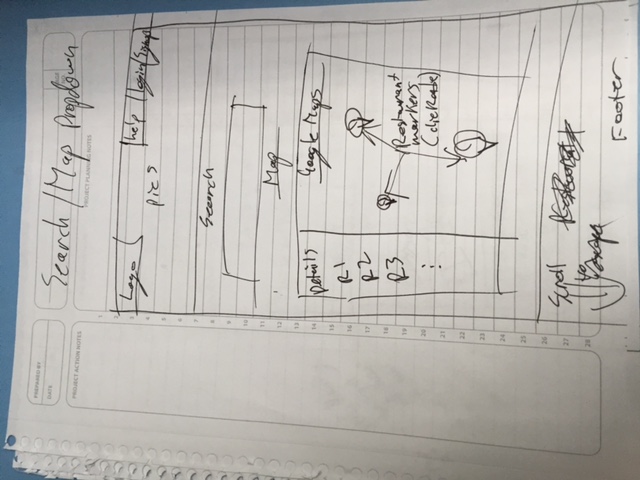 PREPARED BY
DATE
PROJECT ACTION NOTES
Search/Map Dropdown
PROJECT PLANNING NOTES
1
2
3
4
5
6
7
8
9
10
11
12
13
14
15
16
17
18
19
20
21
22
23
24
25
26
27
28
Logo
help
login/Signup
pics
Search
Map
Details
R1
R2
R3
⋮
Google Maps
Restaurant
markers
(clickable)
Scroll
Footer